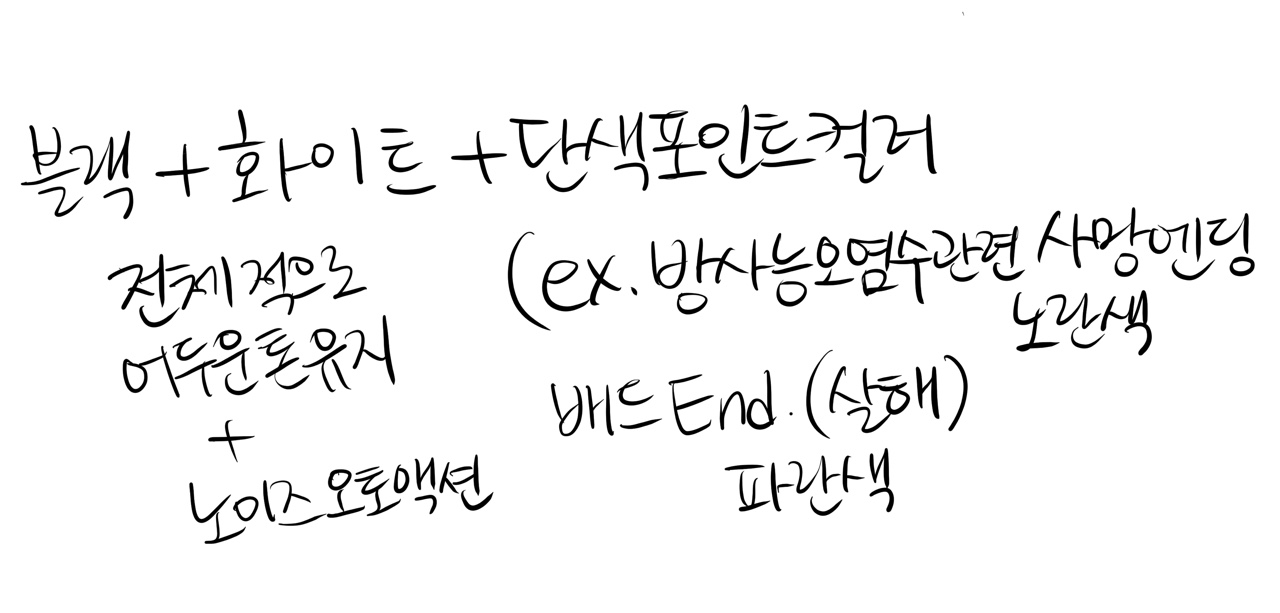 블랙 + 화이트 + 단색포인트컬러
전체적으로
어두운톤유지
+
노이즈오토액션
(ex. 방사능오염수관련 사망엔딩
노란색
배드End. (살해)
파란색